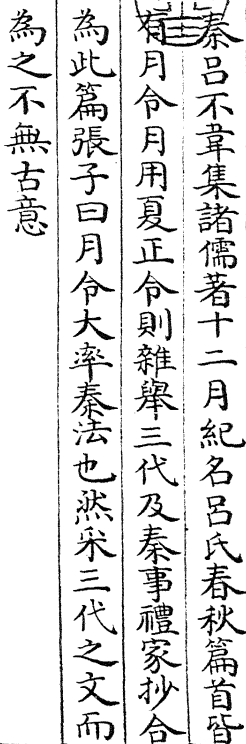 秦呂不韋集諸儒著十二月紀名呂氏春秋篇首皆
有月令月用夏正令則雜舉三代及秦事禮家抄合
為此篇張子曰月令大率秦法也然采三代之文而
為之不無古意